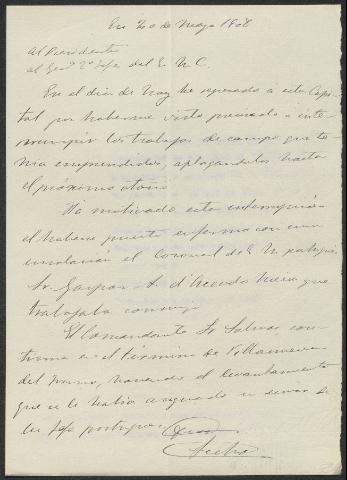 En 20 de Mayo 1902
Al Presidente
al Genl 2º Jefe del E. M. C.
En el dia de hoy he regresado a esta Capi-
tal por haberme visto precisado a inte-
rrumpir los trabajos de campo que te-
nia emprendidos, aplazandolos hasta
el próximo otoño
Ha motivado esta interrupción
el haberse puesto enfermo con una
el Coronel de E. M. portugués
Sr. Gaspar A. d'Acevedo que
trabajaba conmigo
El Comandante Sr Salinas con-
tinua en el Término de Villanueva
del Fresno, haciendo el levantamiento
que se le habia asignado en union de
los Jefes portugueses